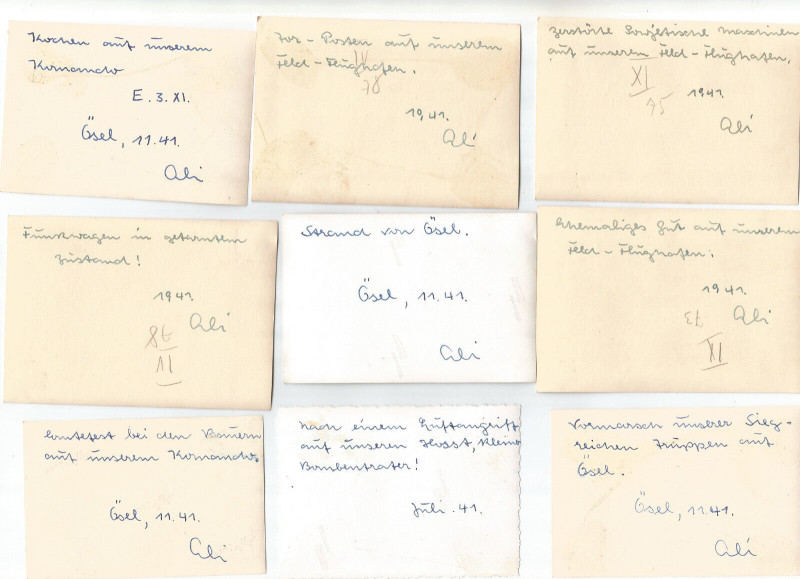 Kochen auf unserem
Komando
E. 3. XI.
Ösel, 11.41.
Ali
Tor-Posten auf unserem
Feld-Flughafen.
IV
78
1941.
Ali
zerstörte Sowjetische maschinen
auf unseren Feld-Flughafen.
XI
75
1941.
Ali
Funkwagen in getarntem
zustand!
1941.
Ali
78
VI
Strand von Ösel.
Ösel, 11.41.
Ali
Ehemaliges Gut auf unserem
Feld-Flughafen.
1941.
73
Ali
XI
Erntefest bei den Bauern
auf unserem Komando.
Ösel, 11.41.
Ali
nach einem Luftangriff
auf unseren Horst, kleine
Bombentrater!
Juli. 41.
Vormarsch unserer Sieg-
reichen Truppen auf
Ösel.
Ösel, 11.41.
Ali